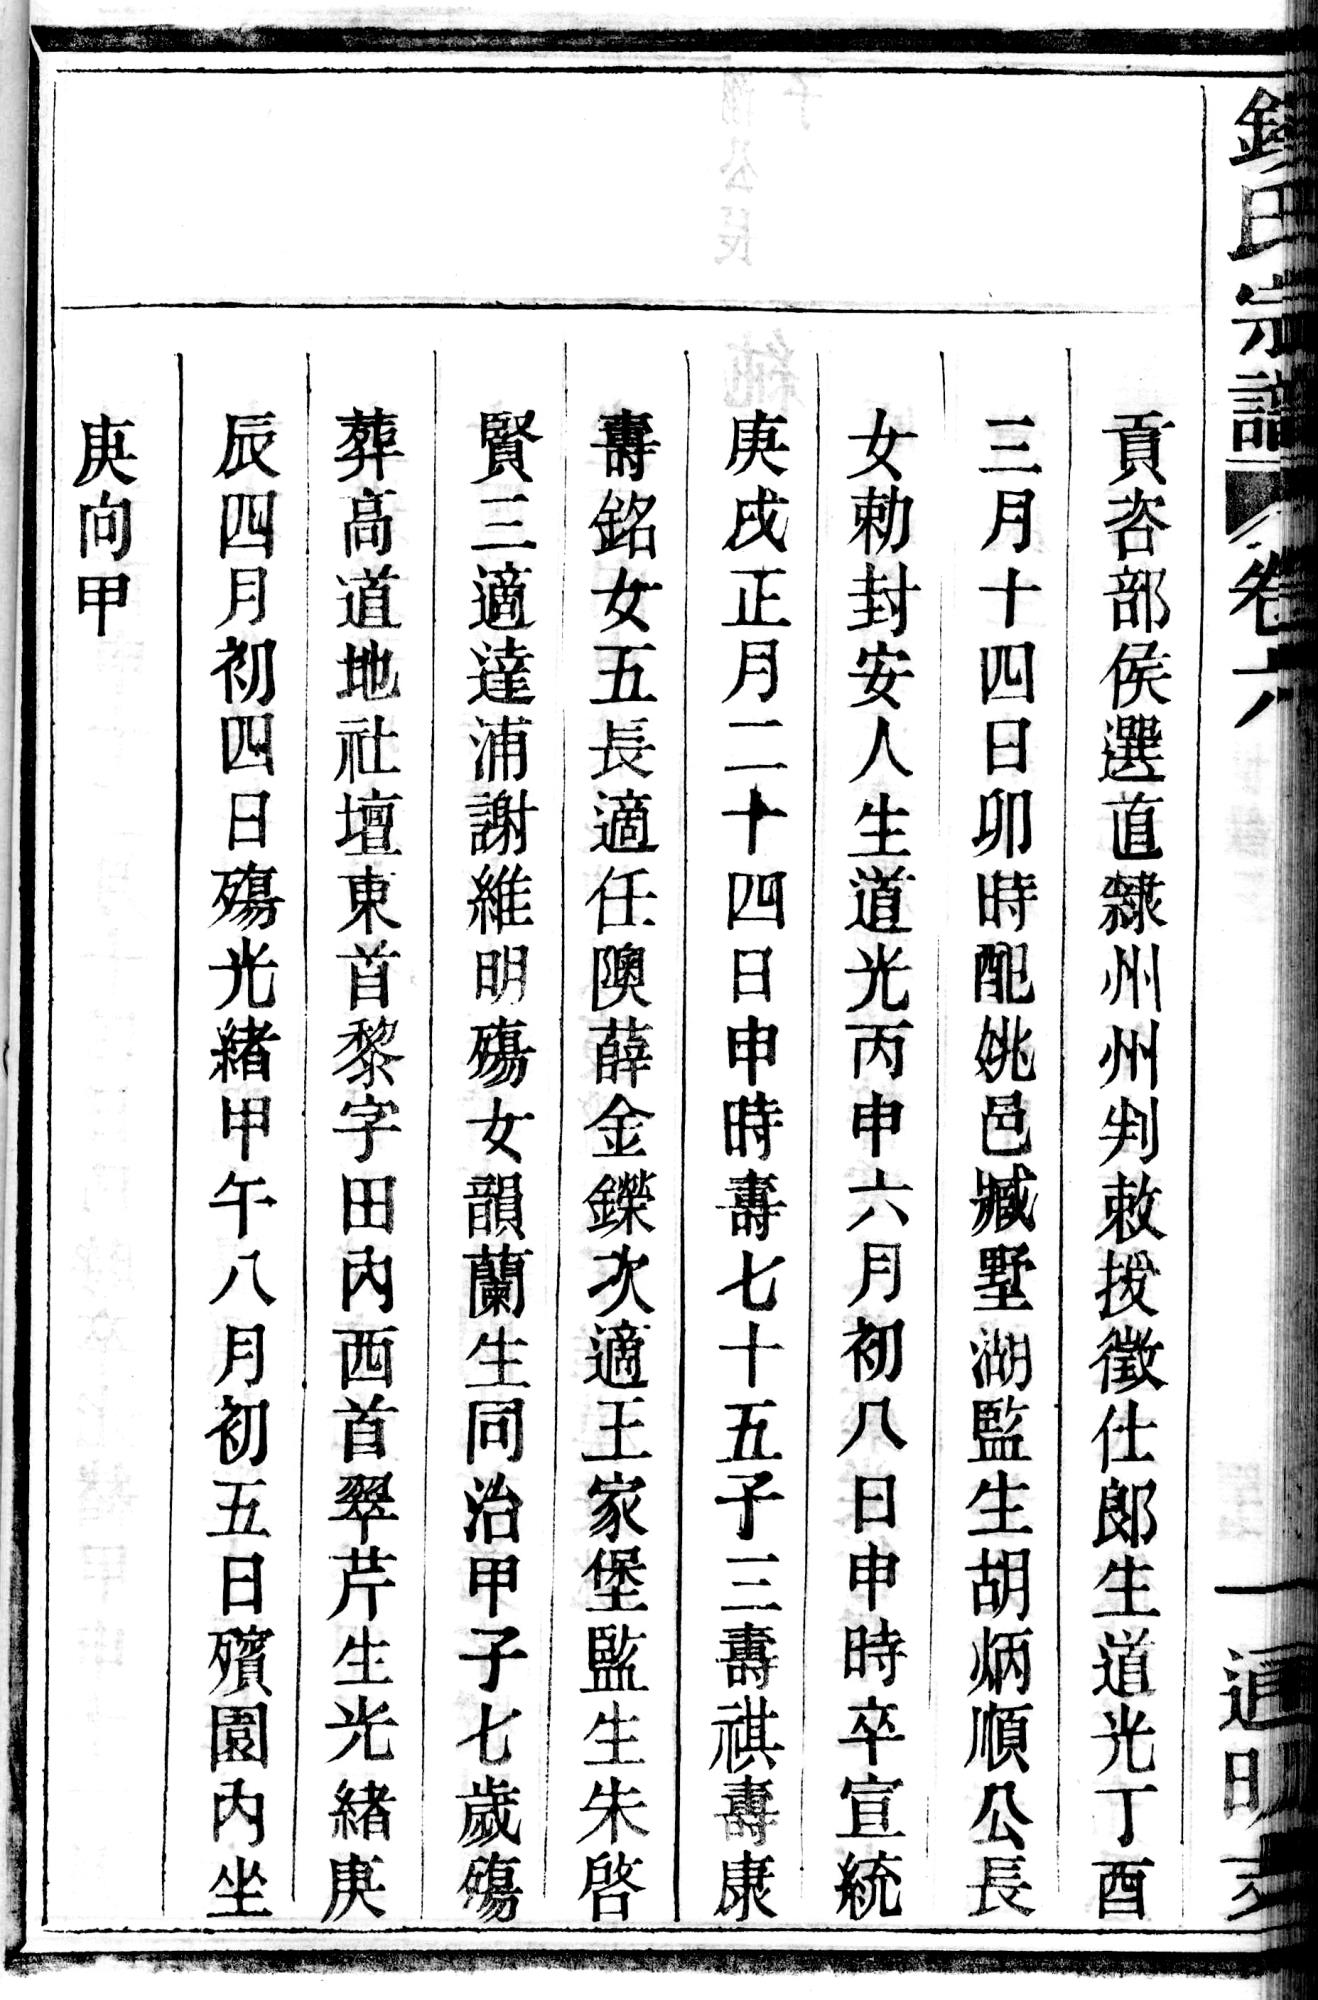 錢氏宗譜 卷六 通明
貢咨部侯選直隸州州判敕援徵仕郎生道光丁酉
三月十四日卯時配姚邑臧墅湖監生胡炳順公長
女勅封安人生道光丙申六月初八日申時卒宣統
庚戌正月二十四日申時壽七十五子三壽祺壽康
壽銘女五長適任隩薛金鑅次適王家堡監生朱啓
賢三適達浦謝維明殤女韻蘭生同治甲子七歲殤
葬高道地社壇東首黎字田內西首翠芹生光緒庚
辰四月初四日殤光緒甲午八月初五日殯園內坐
庚向甲